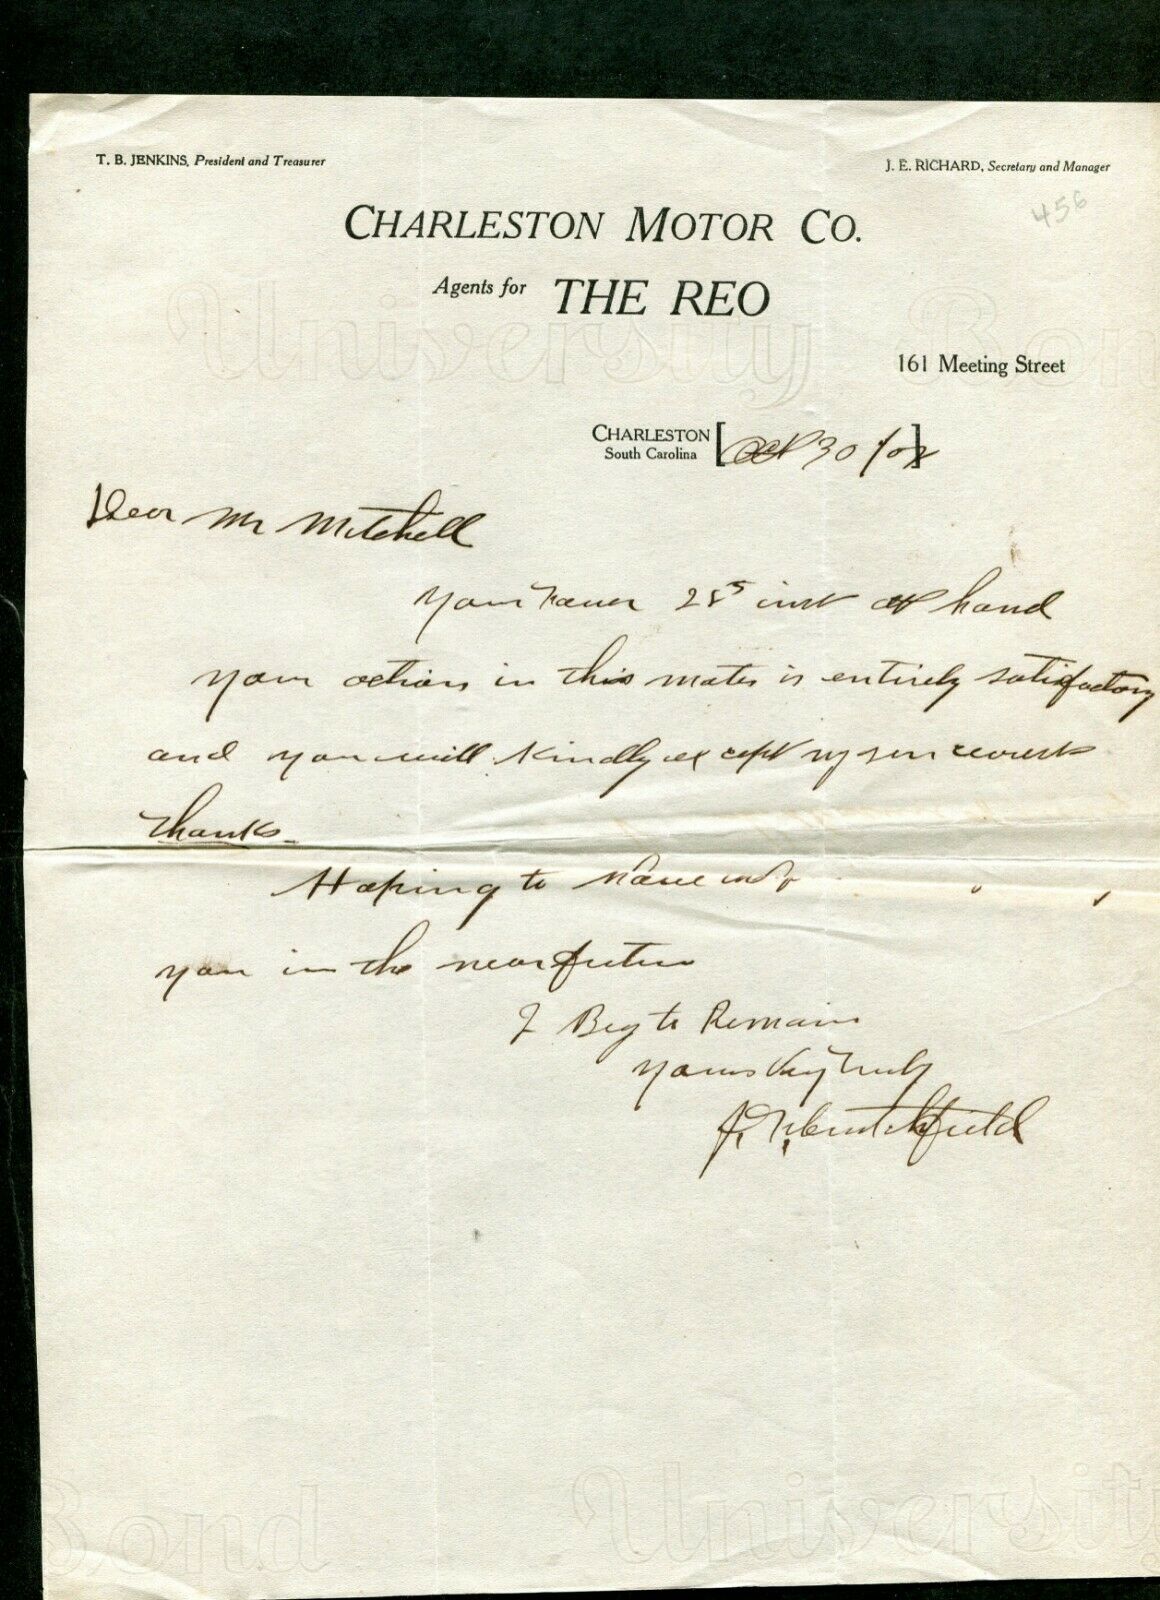 T. B. JENKINS, President and Treasurer
J. E. RICHARD, Secretary and Manager
456
CHARLESTON MOTOR CO.
Agents for THE REO
161 Meeting Street
CHARLESTON
South Carolina
[Oct 30/08]
Dear Mr Mitchell
Your Favor 28 inst at hand
your action in this mater is entirely satisfactory
and you will kindly except my sincerest
thanks.
Hoping to
you in the near future
I Beg to Remain
Yours Very Truly
Crutchfield
University Bond
Bond University